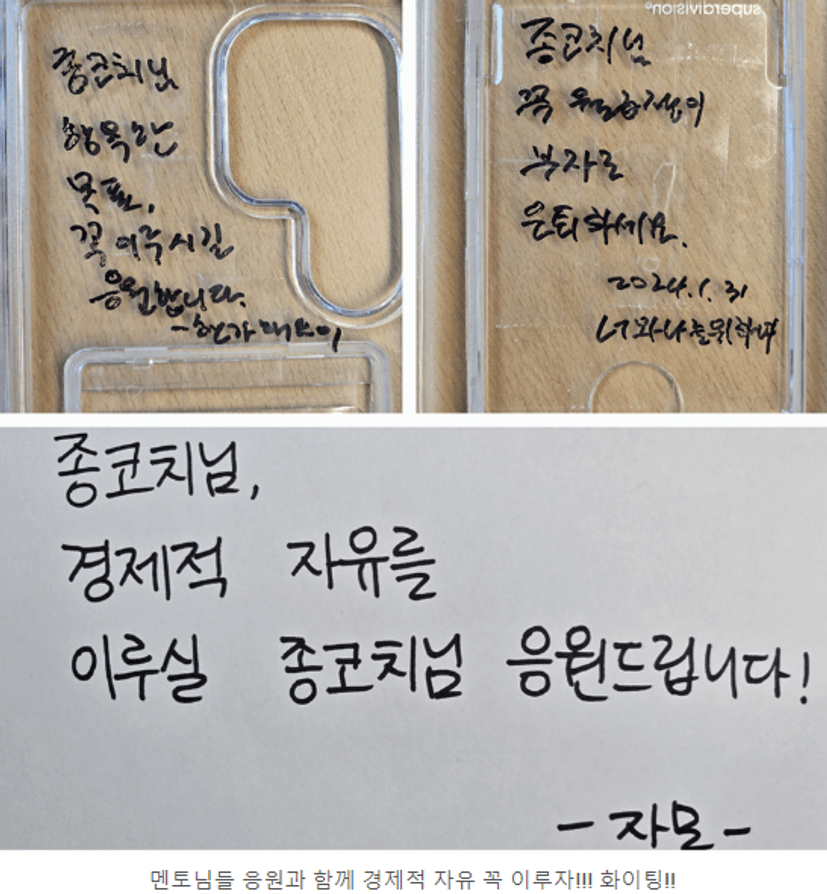 종코치님
행복한
목표,
꼭 이루시길
응원합니다.
superdivision®
종코치님
꼭 월급쟁이
부자로
은퇴하세요.
2024.1.31
너와나를위하여
종코치님,
경제적 자유를
이루실 종코치님 응원드립니다!
- 자모 -
멘토님들 응원과 함께 경제적 자유 꼭 이루자!!! 화이팅!!